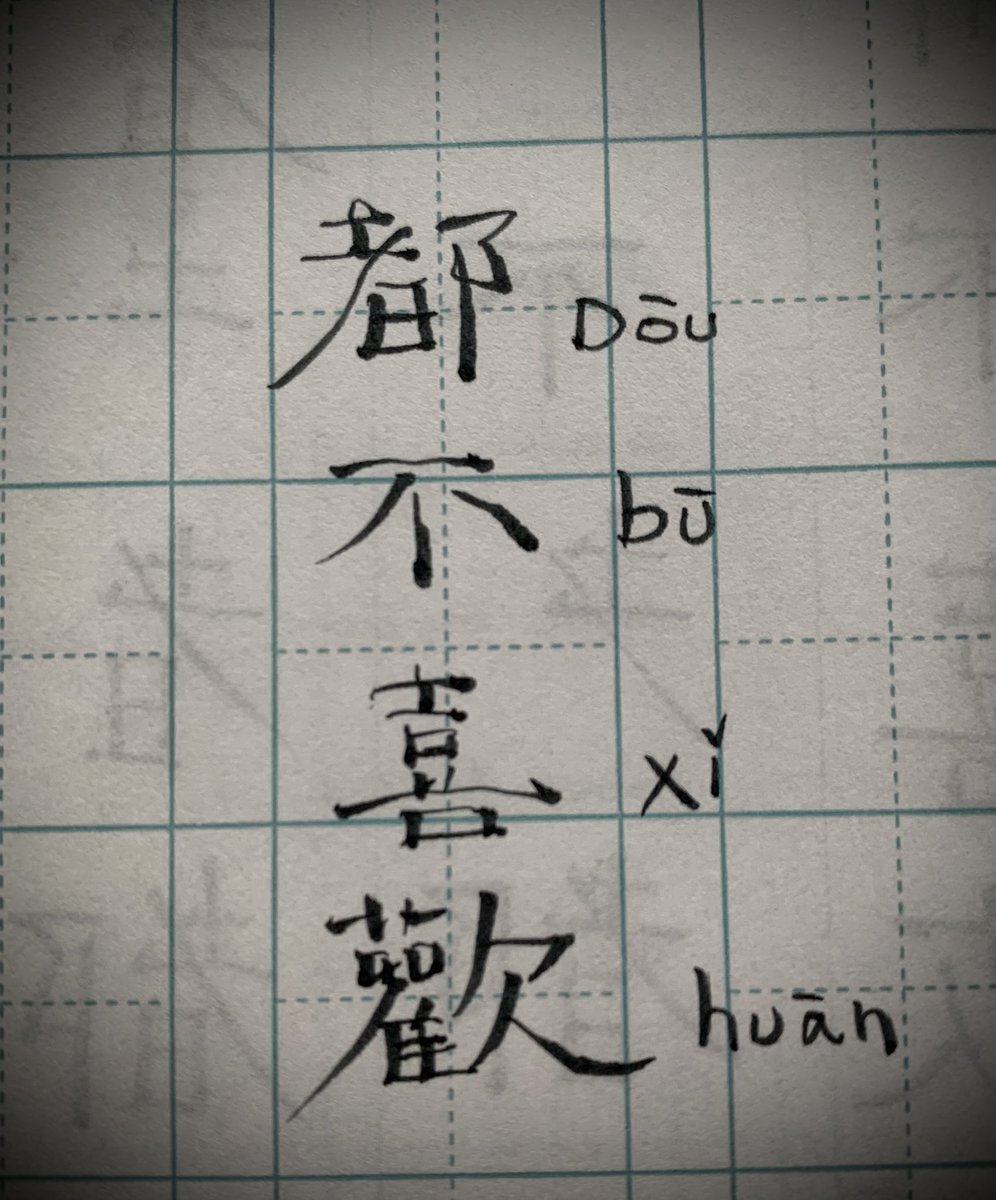 都 Dōu
不 bū
喜 xǐ
歡 huān